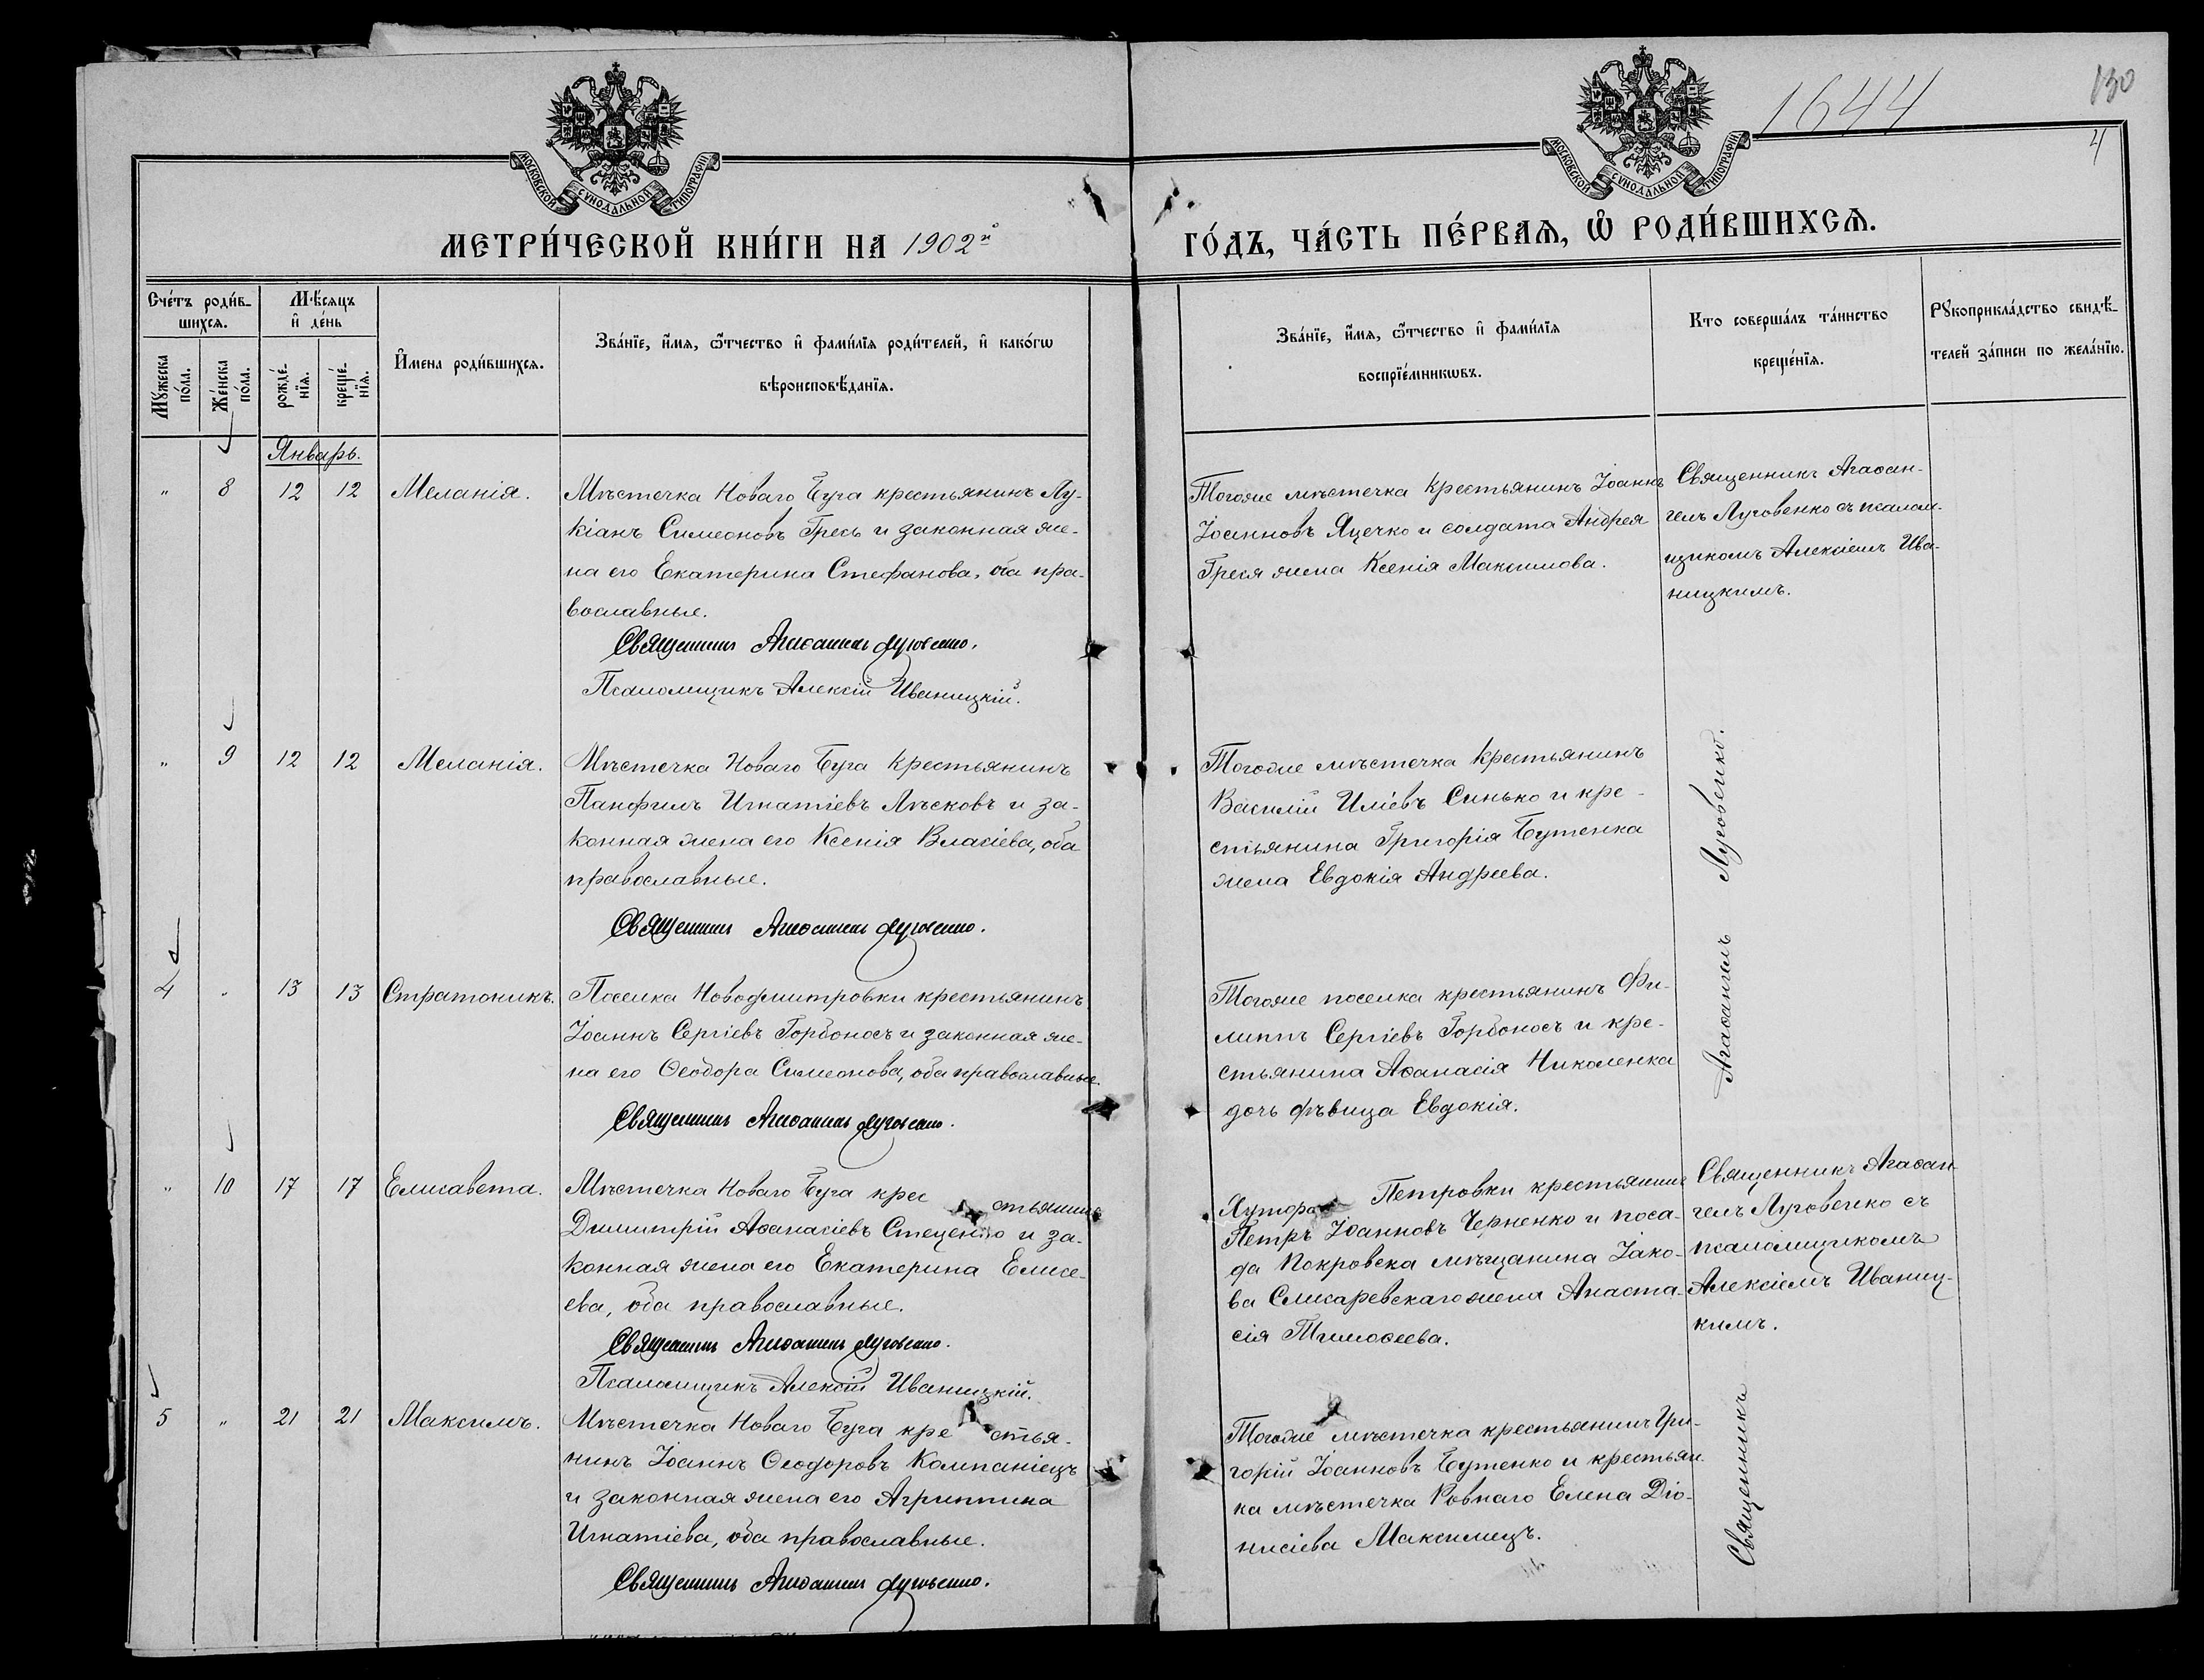 1644
130
4
МОСКОВСКОЙ СѴНОДАЛЬНОЙ ТИПОГРАФІИ
МОСКОВСКОЙ СѴНОДАЛЬНОЙ ТИПОГРАФІИ
МЕТРИ́ЧЕСКОЙ КНИ́ГИ НА 1902й
ГО́ДЪ, ЧА́СТЬ ПЕ́РВАѦ, Ѿ РОДИ́ВШИХСѦ.
Сче́тъ роди́в-
шихсѧ.
Мꙋжеска по́ла.
Же́нска по́ла.
Мѣ́сѧцъ
и҆ де́нь
рожде́нїѧ.
креще́нїѧ.
И҆мена роди́вшихсѧ.
Зва́нїе, и҆́мѧ, ѻ҆́тчество и҆ фами́лїѧ роди́телей, и҆ како́гѡ
вѣроисповѣ́данїѧ.
Зва́нїе, и҆́мѧ, ѻ҆́тчество и҆ фами́лїѧ
воспрїе́мникѡвъ.
Кто соверша́лъ та́инство
креще́нїѧ.
Рꙋкоприкла́дство свидѣ́-
телей за́писи по жела́нїю.
Январь.
" 8 12 12 Меланія.
Мѣстечка Новаго Буга крестьянинъ Лу-
кіанъ Симеоновъ Гресь и законная же-
на его Екатерина Стефанова, оба пра-
вославные.
Священникъ Агаѳангелъ Луговенко.
Псаломщикъ Алексій Иваницкій.
Тогоже мѣстечка крестьянинъ Іоаннъ
Іоанновъ Яцечко и солдата Андрея
Греся жена Ксенія Максимова.
Священникъ Агаѳан-
гелъ Луговенко съ псалом-
щикомъ Алексіемъ Ива-
ницкимъ.
" 9 12 12 Меланія.
Мѣстечка Новаго Буга крестьянинъ
Панфилъ Игнатіевъ Лѣсковъ и за-
конная жена его Ксенія Власіева, оба
православные.
Священникъ Агаѳангелъ Луговенко.
Тогоже мѣстечка крестьянинъ
Василій Иліевъ Синько и кре-
стьянина Григорія Бутенка
жена Евдокія Андреева.
4 " 13 13 Стратоникъ.
Поселка Новодмитровки крестьянинъ
Іоаннъ Сергіевъ Горбоносъ и законная же-
на его Ѳеодора Симеонова, оба православные.
Священникъ Агаѳангелъ Луговенко.
Тогоже поселка крестьянинъ Фи-
липпъ Сергіевъ Горбоносъ и кре-
стьянина Аѳанасія Николенка
дочь дѣвица Евдокія.
" 10 17 17 Елисавета.
Мѣстечка Новаго Буга крестьянинъ
Димитрій Аѳанасіевъ Стеценко и за-
конная жена его Екатерина Елисе-
ева, оба православные.
Священникъ Агаѳангелъ Луговенко.
Псаломщикъ Алексій Иваницкій.
Хутора Петровки крестьянинъ
Петръ Іоанновъ Черненко и поса-
да Покровска мѣщанина Іако-
ва Слисаревскаго жена Анаста-
сія Тимоѳеева.
Священникъ Агаѳан-
гелъ Луговенко съ
псаломщикомъ
Алексіемъ Иваниц-
кимъ.
5 " 21 21 Максимъ.
Мѣстечка Новаго Буга крестья-
нинъ Іоаннъ Ѳеодоровъ Компаніецъ
и законная жена его Агриппина
Игнатіева, оба православные.
Священникъ Агаѳангелъ Луговенко.
Тогоже мѣстечка крестьянинъ Гри-
горій Іоанновъ Бутенко и крестьян-
ка мѣстечка Ровнаго Елена Діо-
нисіева Максимецъ.
Священникъ Агаѳангелъ Луговенко.